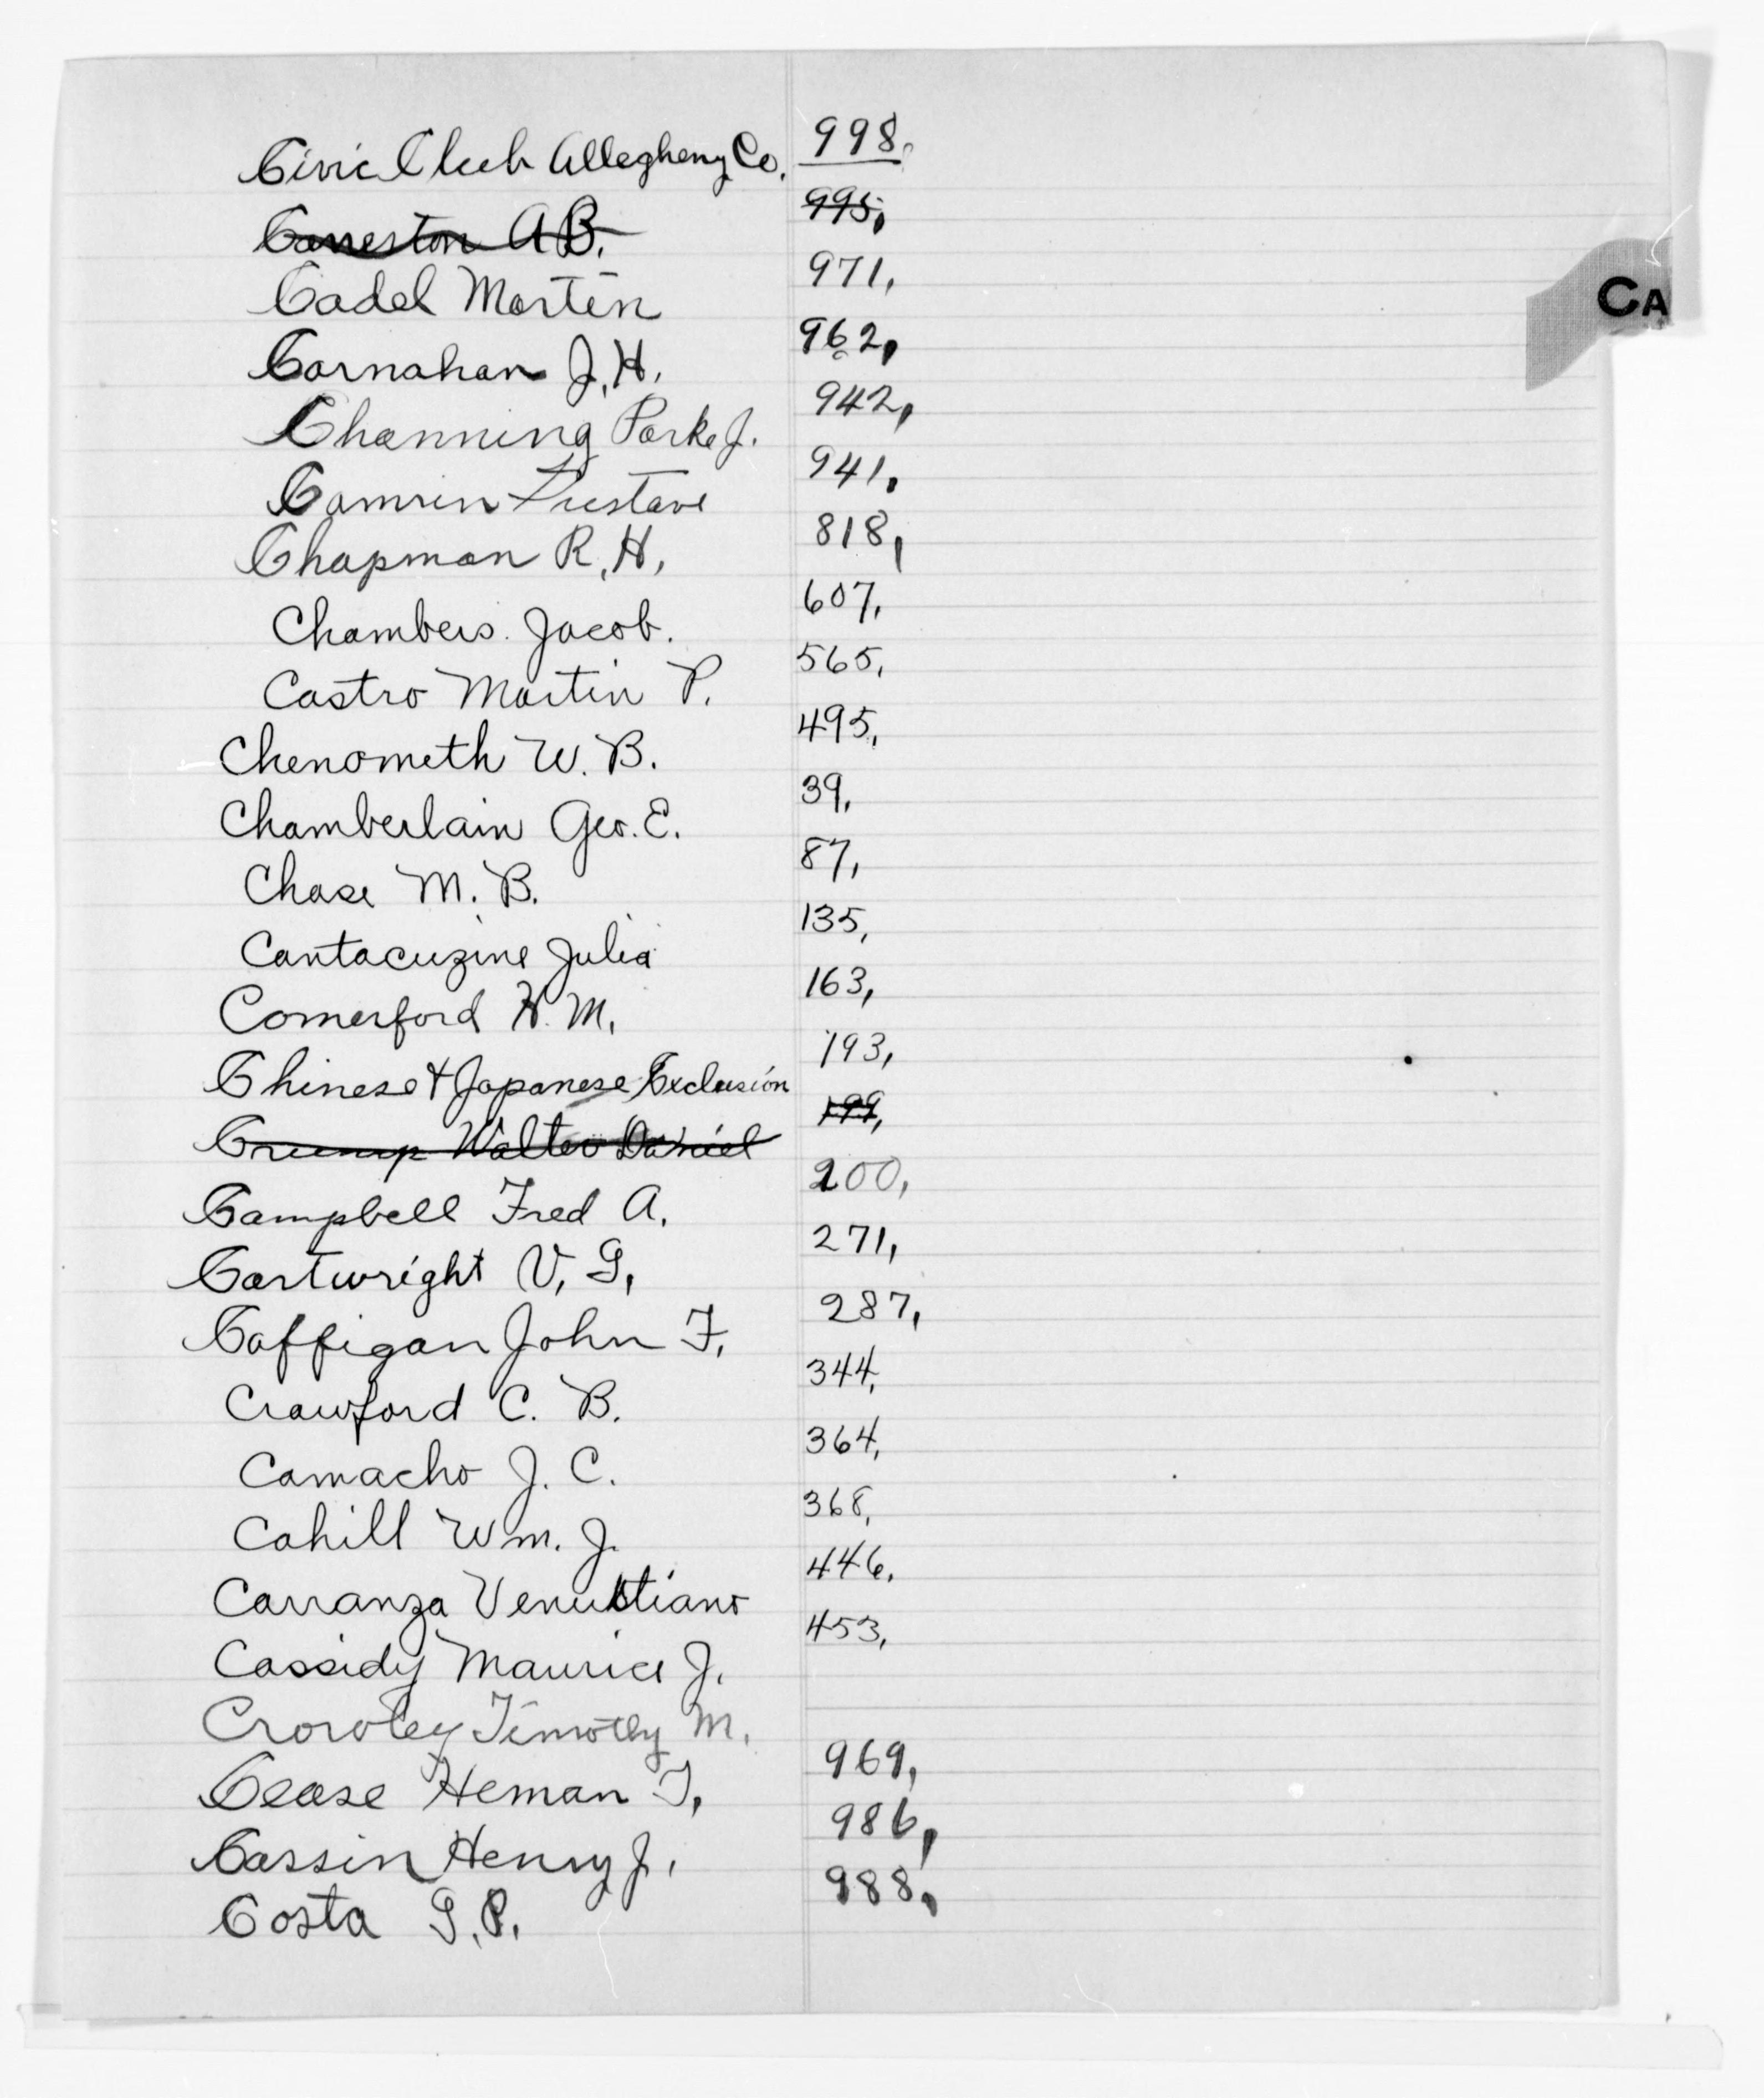 Civic Club Allegheny Co. 998.
Caneston A B. 995,
Cadel Martin 971,
Carnahan J. H. 962,
CA
Channing Parke J. 942,
Camrin Gustave 941,
Chapman R. H. 818,
Chambers. Jacob. 607,
Castro Martin P. 565,
Chenometh W. B. 495,
Chamberlain Geo. E. 39,
Chase M. B. 87,
Cantacuzine Julia 135,
Comerford H. M. 163,
Chinese & Japanese Exclusion 193,
Crump Walter Daniel 199,
Campbell Fred A. 200,
Cartwright V. G. 271,
Caffigan John F. 287,
Crawford C. B. 344,
Camacho J. C. 364,
Cahill Wm. J. 368,
Carranza Venustiano 446,
Cassidy Maurice J. 453,
Crowley Timothy M.
Cease Heman T. 969,
Cassin Henry J. 986,
Costa G. P. 988,